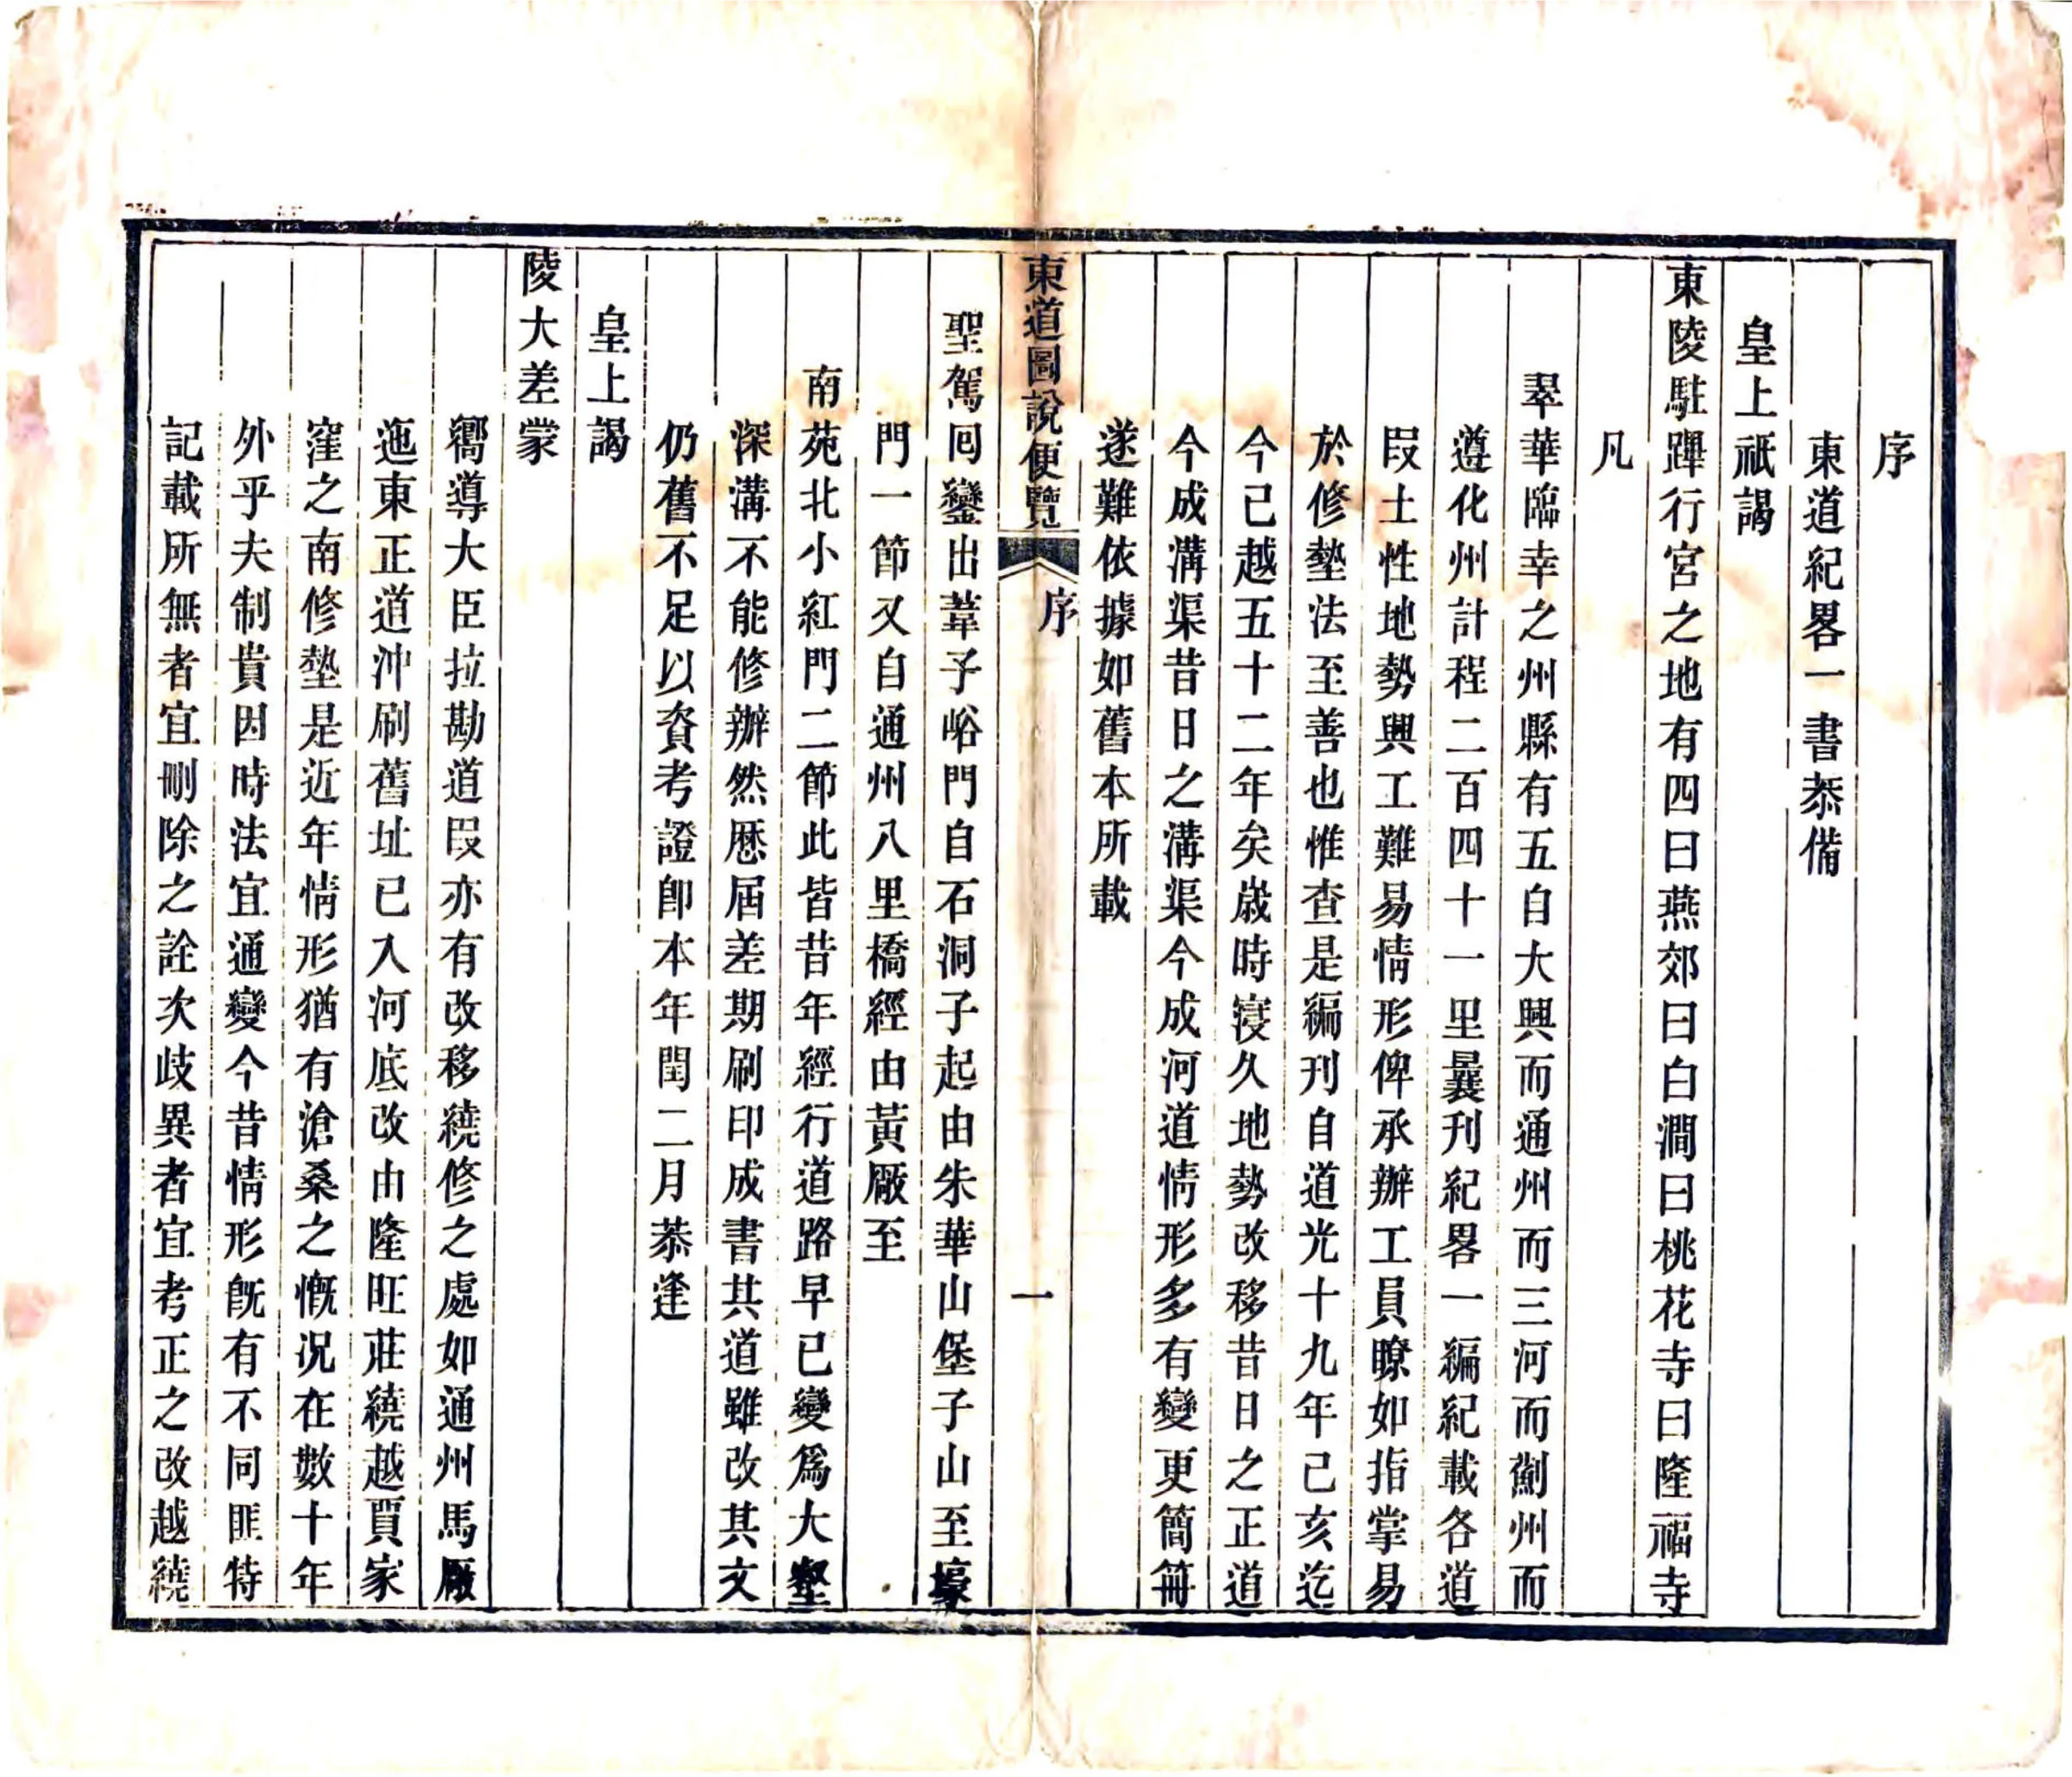 序
東道紀畧一書恭備
皇上祇謁
東陵駐蹕行宮之地有四曰燕郊曰白澗曰桃花寺曰隆福寺
凡
翠華臨幸之州縣有五自大興而通州而三河而薊州而
遵化州計程二百四十一里曩刊紀畧一編紀載各道
段土性地勢興工難易情形俾承辦工員瞭如指掌易
於修墊法至善也惟查是編刊自道光十九年己亥迄
今已越五十二年矣歲時寖久地勢改移昔日之正道
今成溝渠昔日之溝渠今成河道情形多有變更簡冊
遂難依據如舊本所載
東道圖說便覽 序 一
聖駕囘鑾出葦子峪門自石洞子起由朱華山堡子山至壕
門一節又自通州八里橋經由黃厰至
南苑北小紅門二節此皆昔年經行道路早已變爲大壑
深溝不能修辦然歷屆差期刷印成書其道雖改其文
仍舊不足以資考證卽本年閏二月恭逢
皇上謁
陵大差蒙
嚮導大臣拉勘道段亦有改移繞修之處如通州馬厰
迤東正道沖刷舊址已入河底改由隆旺莊繞越賈家
窪之南修墊是近年情形猶有滄桑之慨況在數十年
外乎夫制貴因時法宜通變今昔情形既有不同匪特
記載所無者宜刪除之詮次歧異者宜考正之改越繞